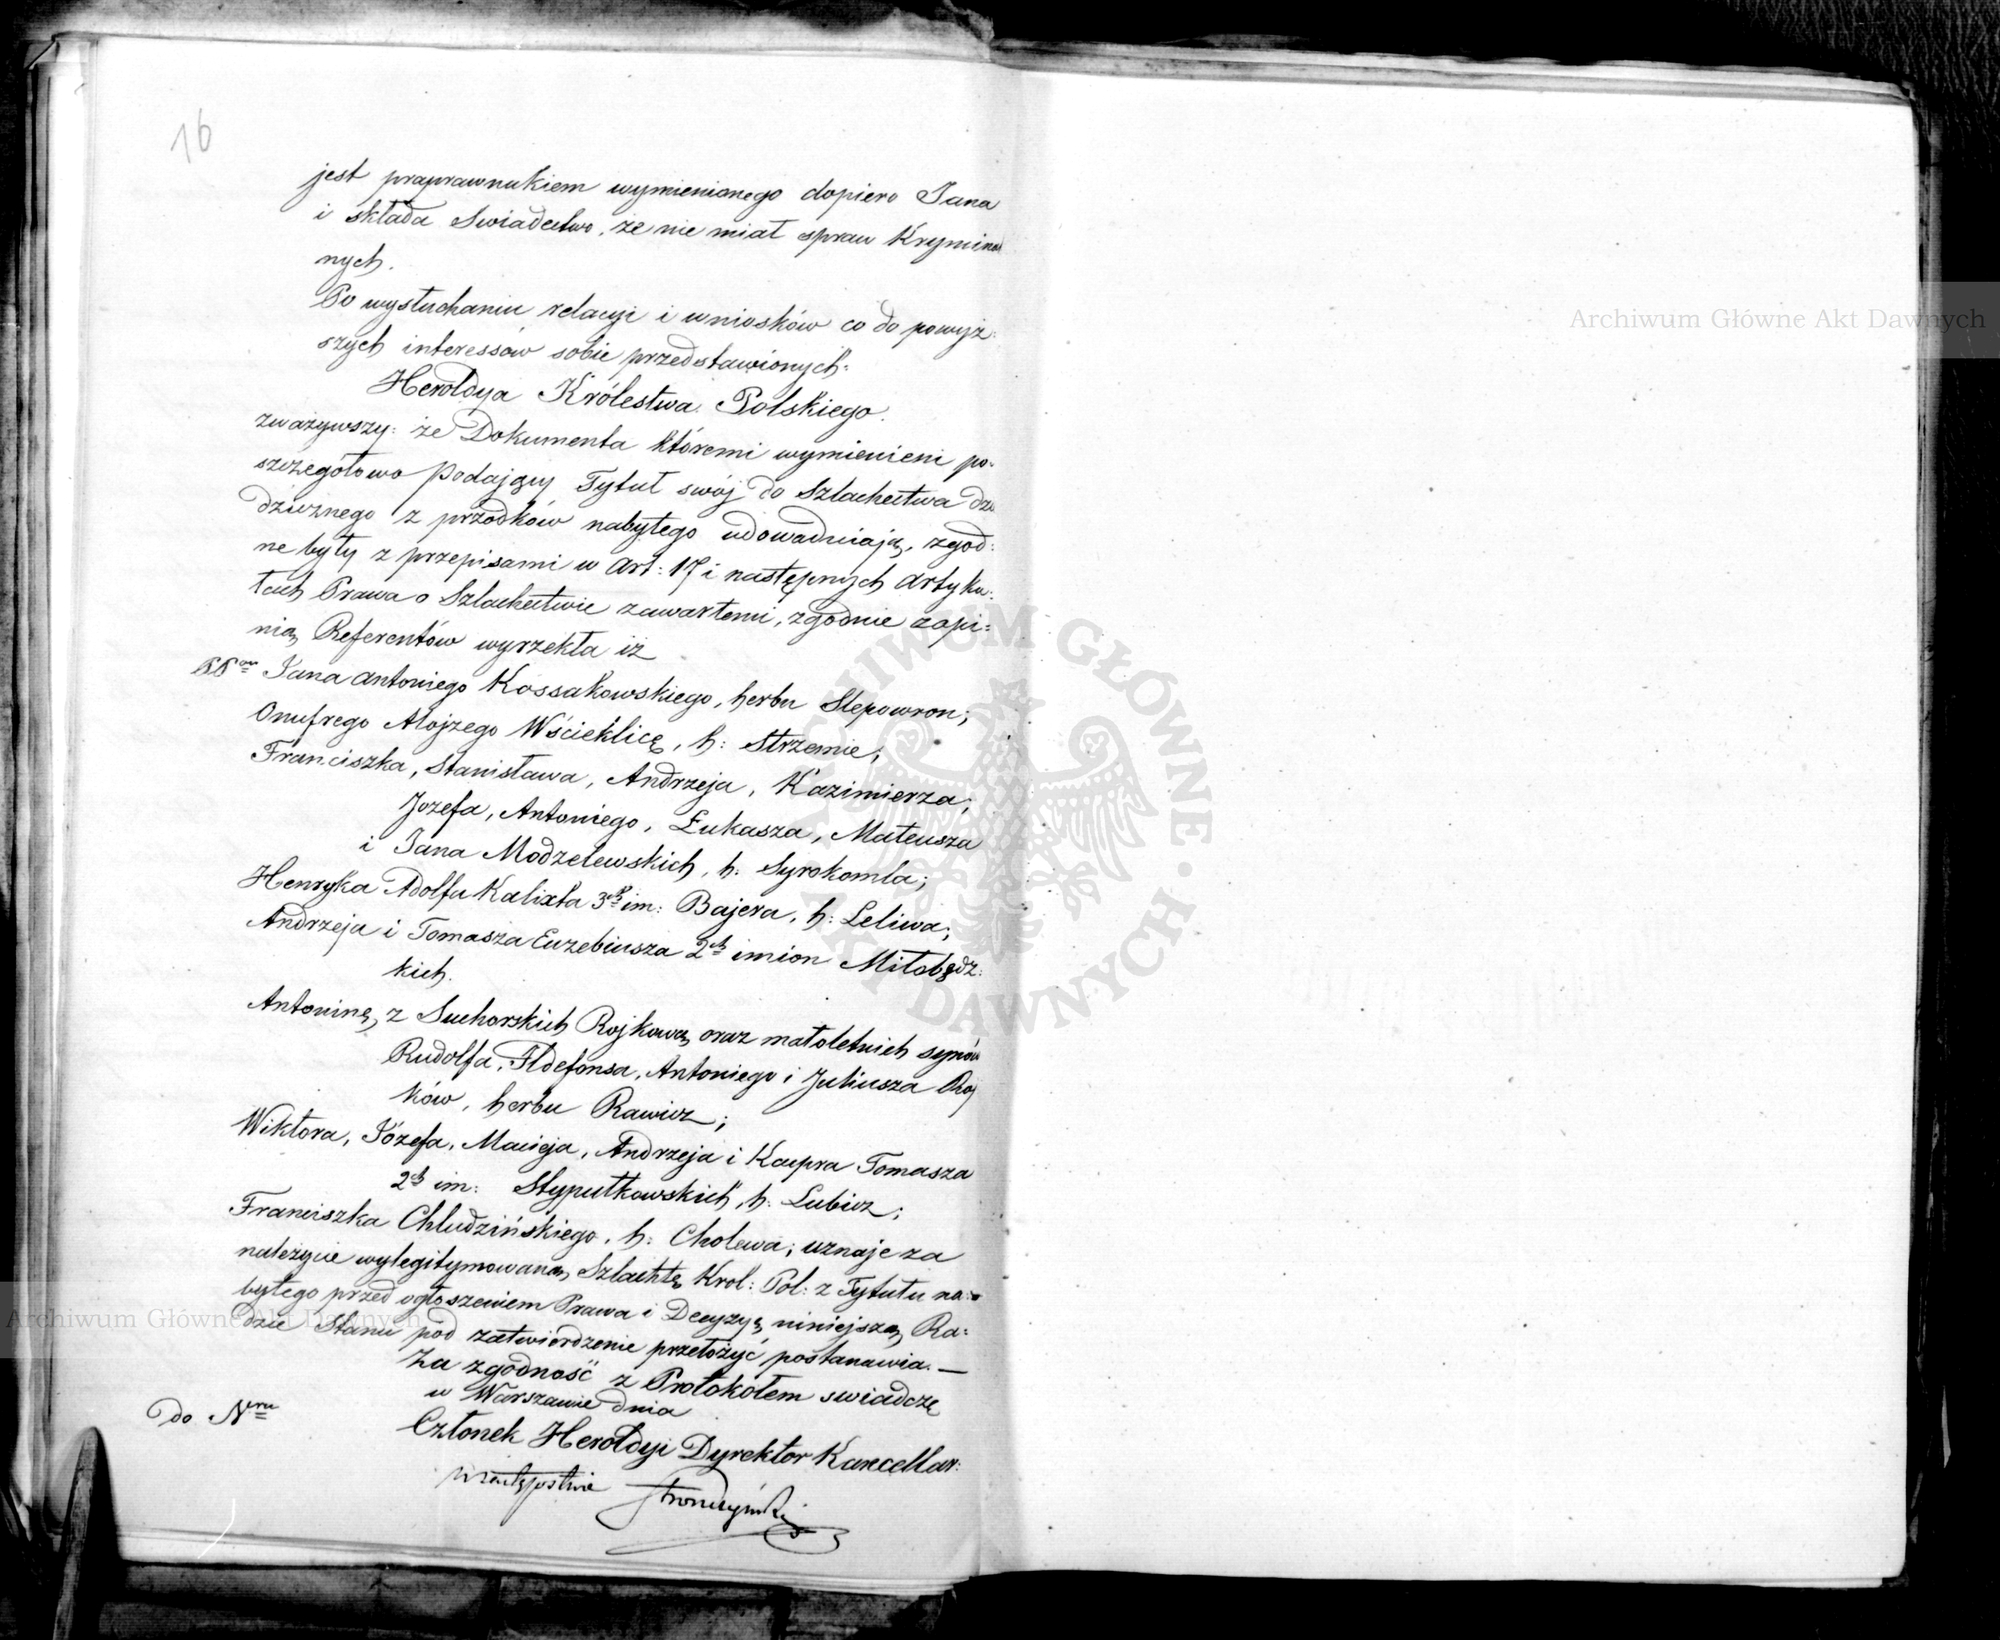 16
jest praprawnukiem wymienionego dopiero Jana
i składa Swiadectwo, że nie miał spraw Krymina
nych.
Po wysłuchaniu relacyi i wniosków co do powyż:
szych interessów sobie przedstawionych:
Heroldya Królestwa Polskiego.
zważywszy: że Dokumenta któremi wymienieni po-
szczegółowo Podający Tytuł swój do Szlachectwa dzie
dzicznego z przodków nabytego udowadniają, zgod:
ne były z przepisami w Art: 17 i następnych Artyku:
łach Prawa o Szlachectwie zawartemi, zgodnie z opi:
nią Referentów wyrzekła iż
Jana Antoniego Kossakowskiego, herbu Slepowron;
Onufrego Alojzego Wścieklicę, h: Strzemie;
Franciszka, Stanisława, Andrzeja, Kazimierza,
Jozefa, Antoniego, Łukasza, Mateusza
i Jana Modzelewskich, h: Syrokomla;
Henryka Adolfa Kalixta 3ch im: Bajera, h: Leliwa;
Andrzeja i Tomasza Euzebiusza 2ch imion Miłobędz:
kich.
Antoninę z Suchorskich Rojkową oraz małoletnich synów
Rudolfa, Ildefonsa, Antoniego i Juliusza Roj
ków, herbu Rawicz;
Wiktora, Józefa, Macieja, Andrzeja i Kacpra Tomasza
2ch im: Stypułkowskich, h: Lubicz;
Franciszka Chludzińskiego, h: Cholewa; uznaje za
należycie wylegitymowaną Szlachtę Krol: Pol: z Tytułu na:
bytego przed ogłoszeniem Prawa i Decyzyę niniejszą Ra:
dzie Stanu pod zatwierdzenie przełożyć postanawia. —
Za zgodność z Protokółem swiadczę
w Warszawie dnia
do Neru
Członek Heroldyi Dyrektor Kancellar:
w zastępstwie Stronczyński
Archiwum Główne Akt Dawnych
Archiwum Główne Akt Dawnych
ARCHIWUM GŁÓWNE · AKT DAWNYCH ·